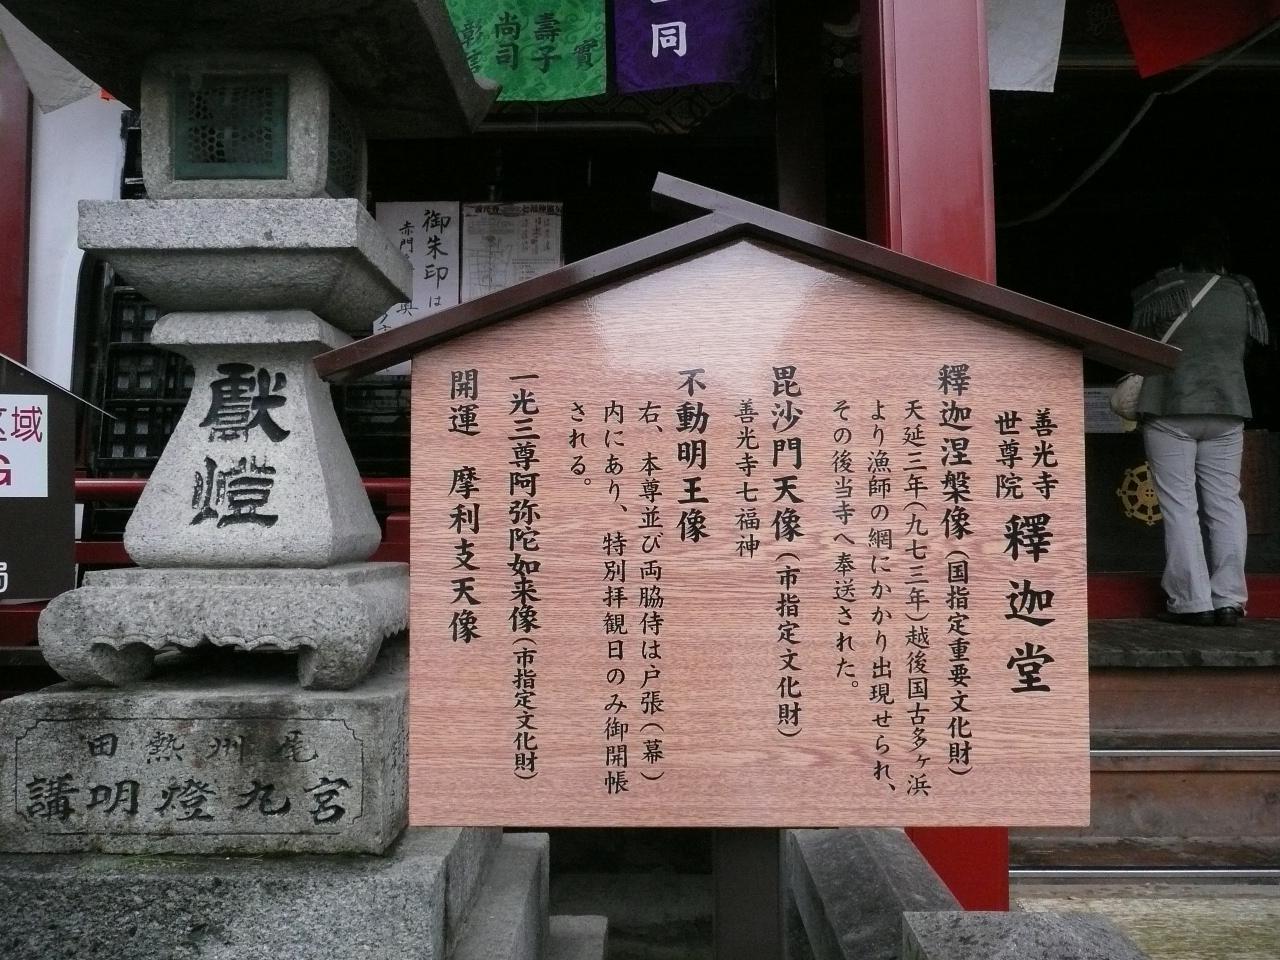 善光寺
世尊院
釋迦堂
釋迦涅槃像（国指定重要文化財）
天延三年（九七三年）越後国古多ヶ浜
より漁師の網にかかり出現せられ、
その後当寺へ奉送された。
毘沙門天像（市指定文化財）
善光寺七福神
不動明王像
右、本尊並び両脇侍は戸張（幕）
内にあり、特別拝観日のみ御開帳
される。
一光三尊阿弥陀如来像（市指定文化財）
開運 摩利支天像
獻燈
尾州熱田
宮九燈明講
御朱印は
赤門
一同
壽子
尚司
区域